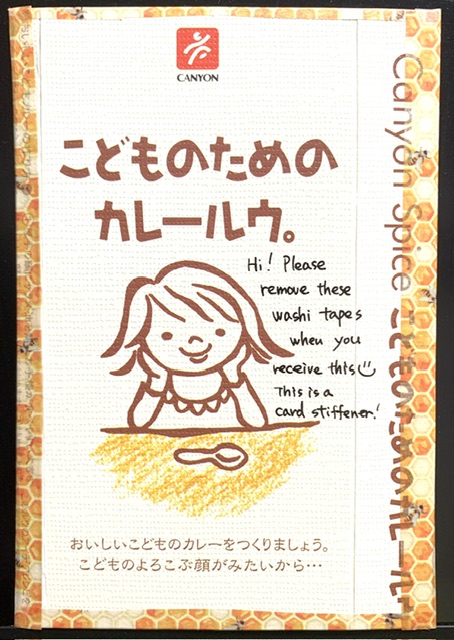 CANYON
こどものための
カレールウ。
Hi! Please
remove these
washi tapes
when you
receive this
This is a
card stiffener!
おいしいこどものカレーをつくりましょう。
こどものよろこぶ顔がみたいから…
Canyon Spice こどものためのカレールウ